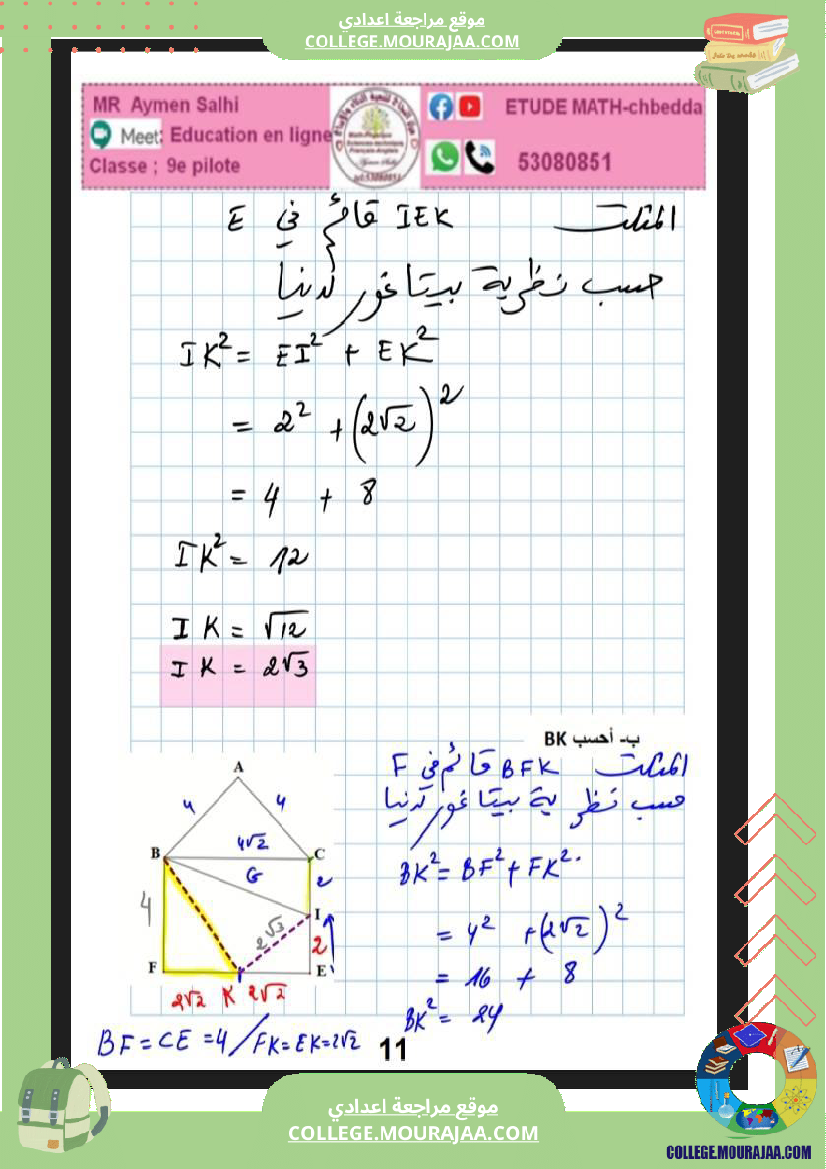 موقع مراجعة اعدادي
COLLEGE.MOURAJAA.COM
MR Aymen Salhi
Meet: Education en ligne
Classe : 9e pilote
ETUDE MATH-chbedda
53080851
المثلث IEK قائم في E
حسب نظرية بيتاغور لدينا
IK² = EI² + EK²
= 2² + (2√2)²
= 4 + 8
IK² = 12
IK = √12
IK = 2√3
ب- أحسب BK
المثلث BFK قائم في F
حسب نظرية بيتاغور لدينا
BK² = BF² + FK²
= 4² + (2√2)²
= 16 + 8
BK² = 24
A
4 4
4√2
B C
6 2
4 I
2√3 2
F E
2√2 K 2√2
BF = CE = 4 / FK = EK = 2√2
11
موقع مراجعة اعدادي
COLLEGE.MOURAJAA.COM
COLLEGE.MOURAJAA.COM